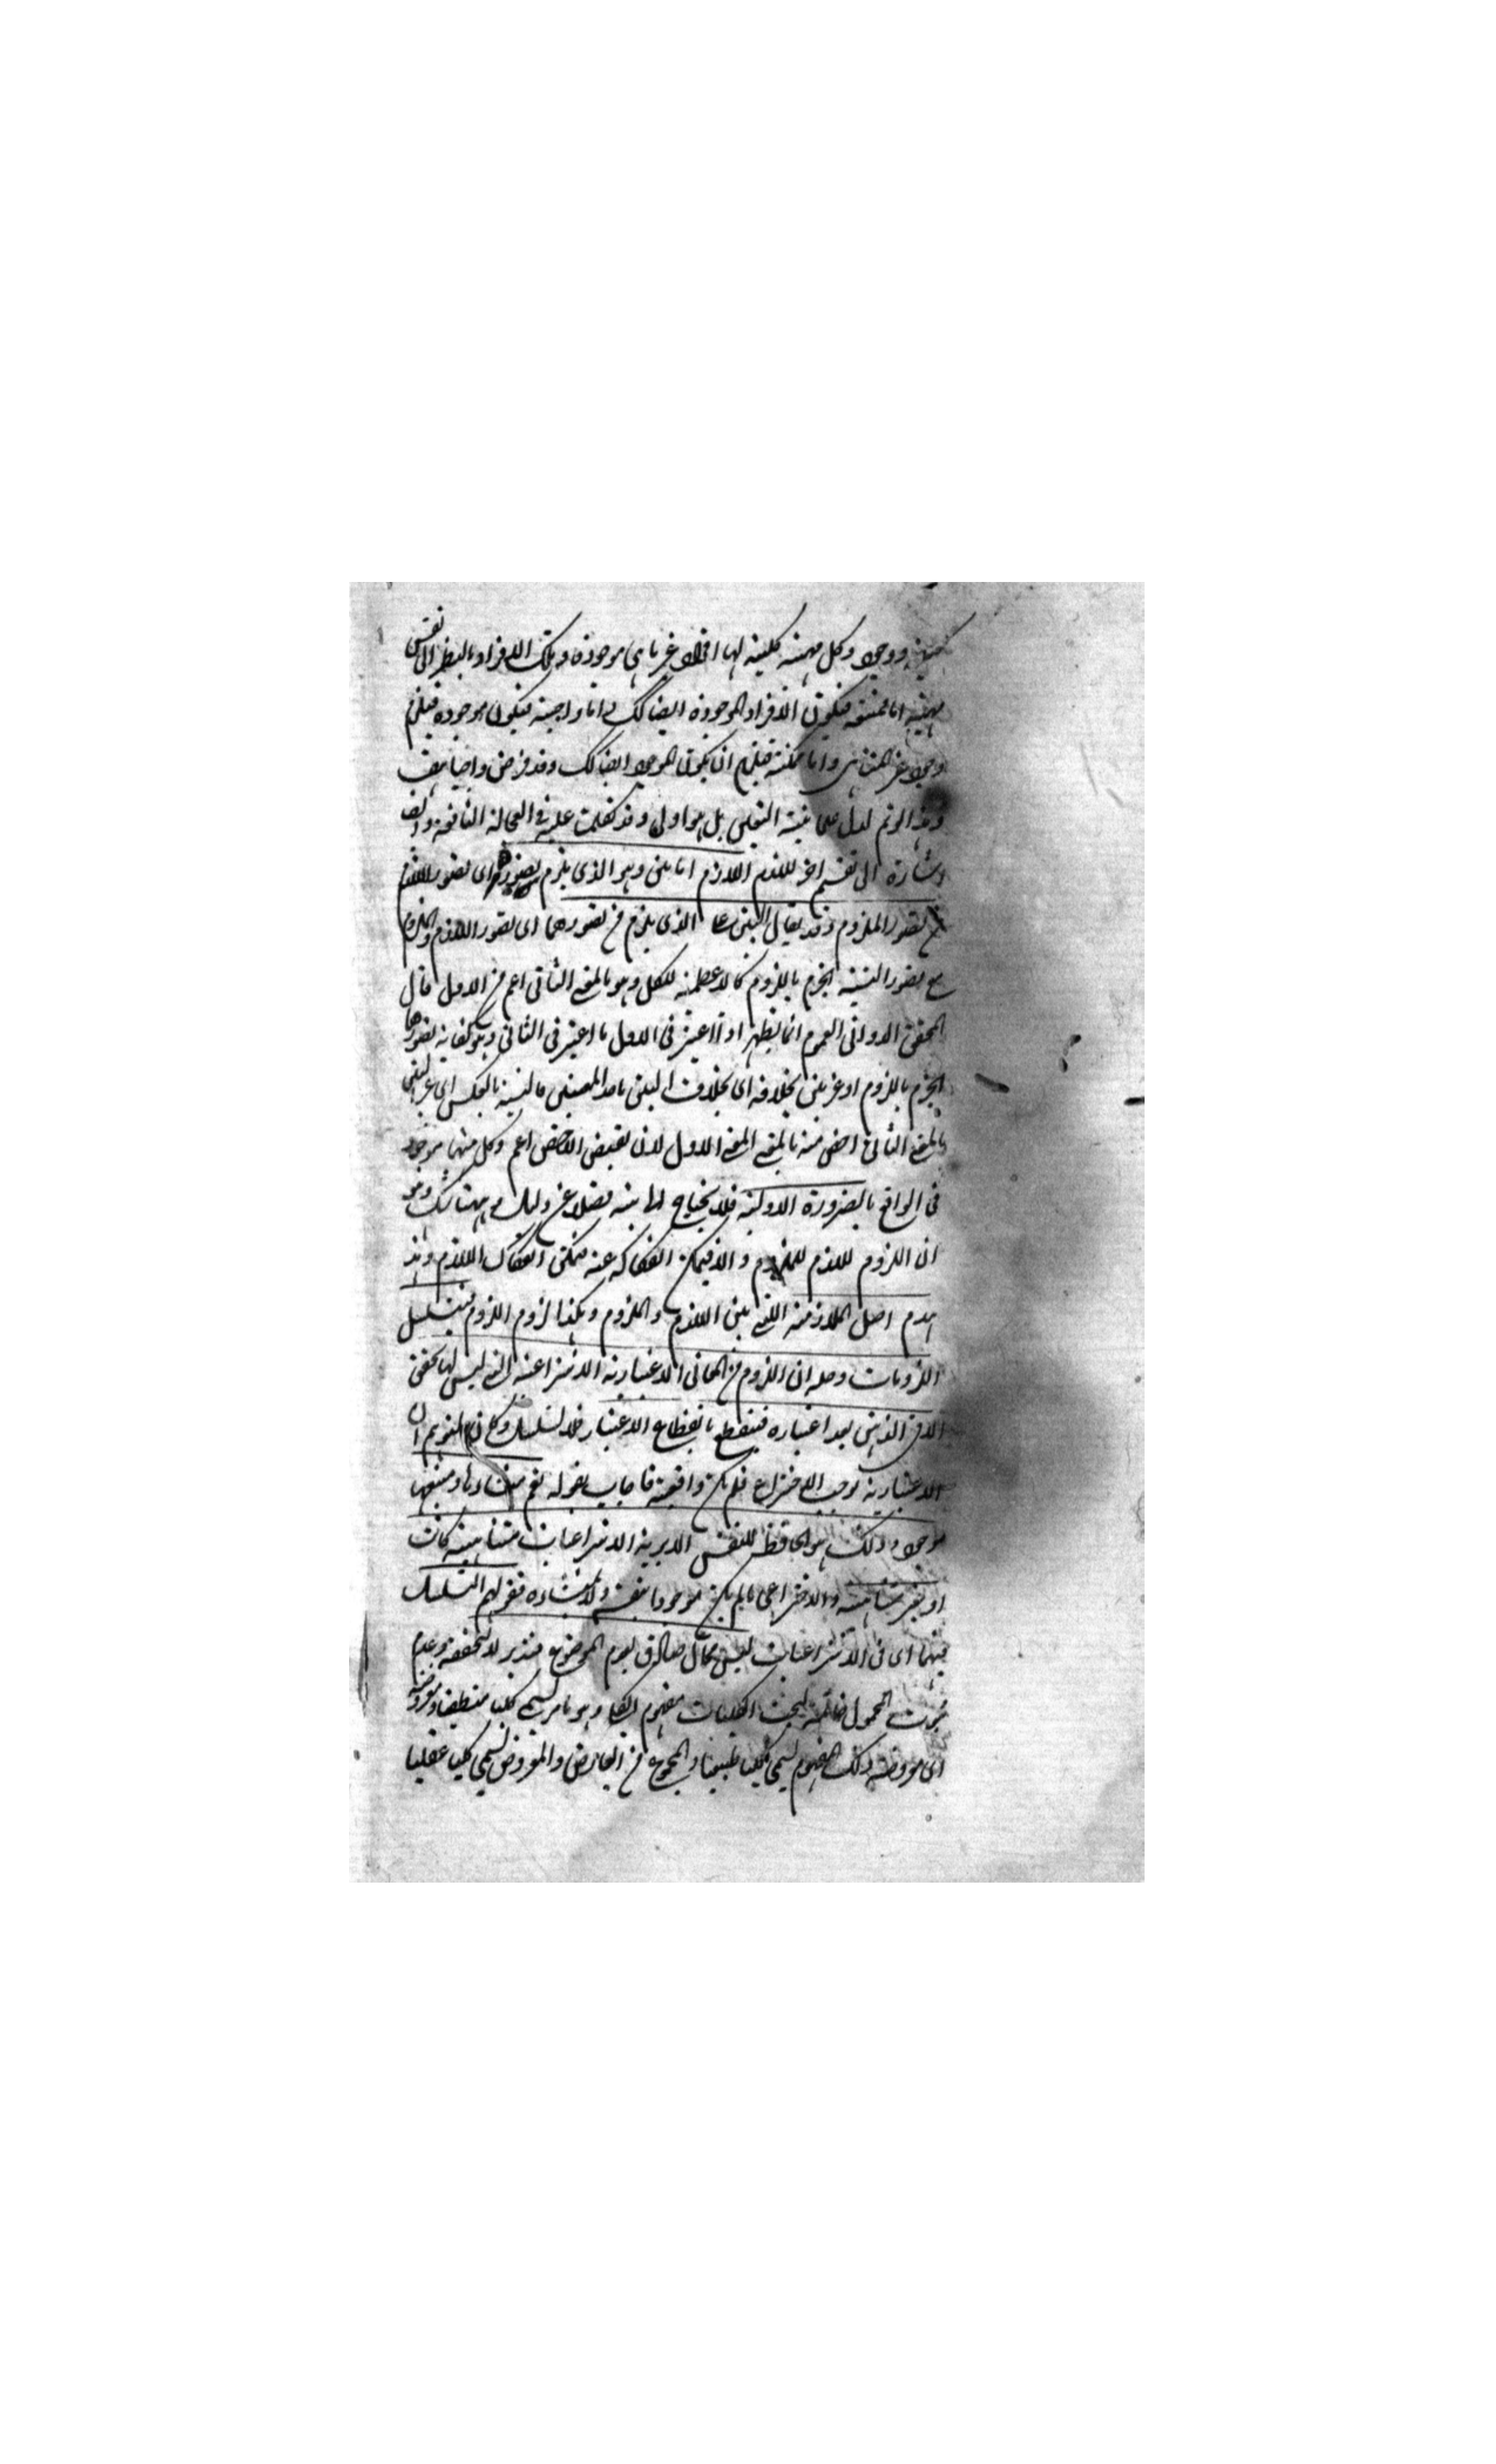 ووجود وكل مهية كلية لها افراد غير ما هي موجودة وتلك الافراد بالنظر الى نفس
مهية اما ممتنعة فيكون الافراد الموجودة ايضا كك واما واجبة فيكون موجودة فيلزم
وجود غير المتناهي واما ممكنة فيلزم ان يكون الموجود ايضا كك وقد فرض واجبا هف
وهذا لو تم لدل على عينية التعين بل هو اولى وقد تكلمت عليه في العجالة النافعة وايضا
اشارة الى تقسيم اخر للازم اللازم اما بين وهو الذي يلزم تصوره اى تصور اللازم
من تصور الملزوم وقد يقال البين على الذي يلزم من تصورهما اى تصور اللازم والملزوم
مع تصور النسبة الجزم باللزوم كالاعظمية للكل وهو بالمعنى الثاني اعم من الاول قال
المحقق الدواني العموم انما يظهر اذا اعتبر في الاول ما اعتبر في الثاني وهو كفاية تصورهما
الجزم باللزوم او غير بين بخلافه اى بخلاف البين باحد المعنيين فالنسبة بالعكس اى غير البين
بالمعنى الثاني اخص منه بالمعنى الاول لان نقيض الاخص اعم وكل منهما موجود
في الواقع بالضرورة الاولية فلا يحتاج الى بينة فضلا عن دليل وههنا شك وهو
ان اللزوم لازم للملزوم والا فيمكن انفكاكه عنه فيمكن انفكاك اللازم وهذا
هدم اصل الملازمة التي بين اللازم والملزوم وهكذا لزوم اللزوم فيتسلسل
اللزومات وحله ان اللزوم من المعاني الاعتبارية الانتزاعية التي ليس لها تحقق
الا في الذهن بعد اعتباره فينقطع بانقطاع الاعتبار فلا تسلسل وكان المتوهم ان
الاعتبارية توجب الاختراع فلم يكن واقعية فاجاب بقوله نعم منشاءها ومنبعها
موجود وذلك هو الحافظ لنفس الامرية الانتزاعيات متناهية كانت
او غير متناهية والاختراعي ما لم يكن موجودا بنفسه ولا بمنشاءه فقولهم التسلسل
فيها اى في الانتزاعيات ليس بمحال صادق لعدم الموضوع فتدبر لا لتحققه وعدم
ثبوت المحمول خاتمة لبحث الكليات مفهوم الكلي وهو ما مر يسمى كليا منطقيا ومعروضه
اى معروض ذلك المفهوم يسمى كليا طبيعيا والمجموع من العارض والمعروض يسمى كليا عقليا